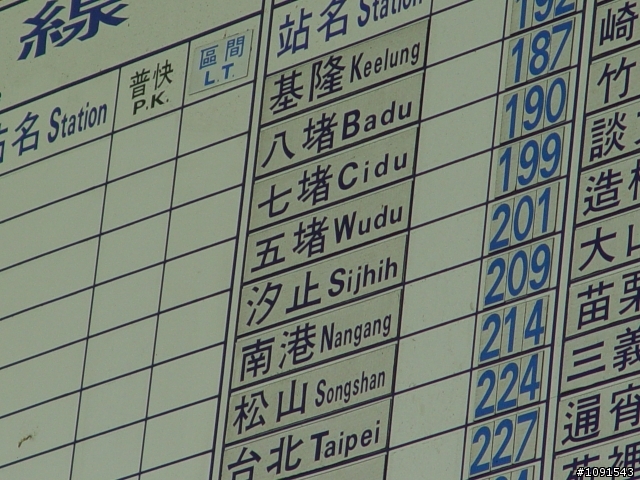 線
站名 Station
普快 P.K.
區間 L.T.
站名 Station
基隆 Keelung
八堵 Badu
七堵 Cidu
五堵 Wudu
汐止 Sijhih
南港 Nangang
松山 Songshan
台北 Taipei
192
187
190
199
201
209
214
224
227
崎
竹
談
造
大山
苗栗
三義
通宵
#1091543